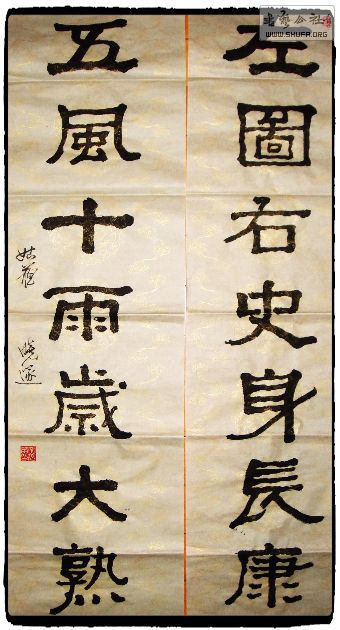 左圖右史身長康
五風十雨歲大熟
姑蘇
書藝公社
WWW.SHUFA.ORG